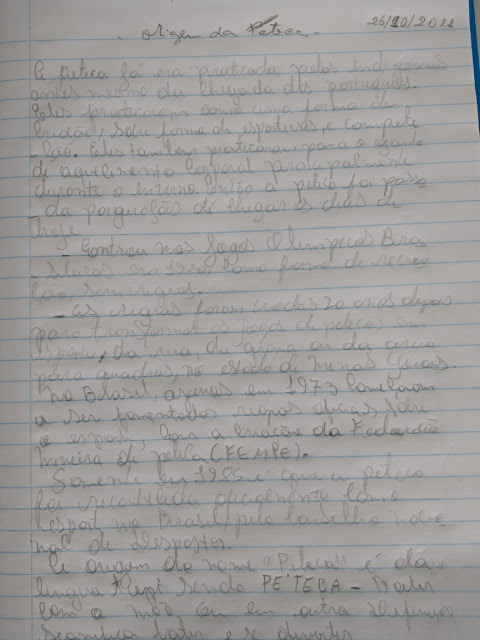 26/10/2021
Origem da Peteca.
A peteca já era praticada pelos indígenas
antes mesmo da chegada dos portugueses.
Eles praticavam como uma forma de
sobre forma de esportivas e compete
ção. Eles também praticavam para o
de aquecimento corporal principalmente
durante o inverno então a peteca foi passa
da por gerações até chegar os dias de
hoje
- Entrou nos Jogos Olimpicos Bra
sileiros em 1920 como forma de recrea
ção sem regras.
- As regras foram criadas 20 anos depois
para transformar os jogos de petecas em
esporte, da rua, da grama ou da areia
para quadras, no estado de Minas Gerais.
No Brasil, apenas em 1973 começaram
a ser fomentados regras oficias sobre
o esporte, com a criação da Federação
mineira de peteca (FEMPE).
Somente em 1985 é que a peteca
foi reconhecida oficialmente como
esport no Brasil pelo conselho nacio
nal de Desportos.
A origem do nome "Peteca" é da
lingua tupi sendo PE'TECA - Bater
com a mão ou em outra definição
significa bater e se